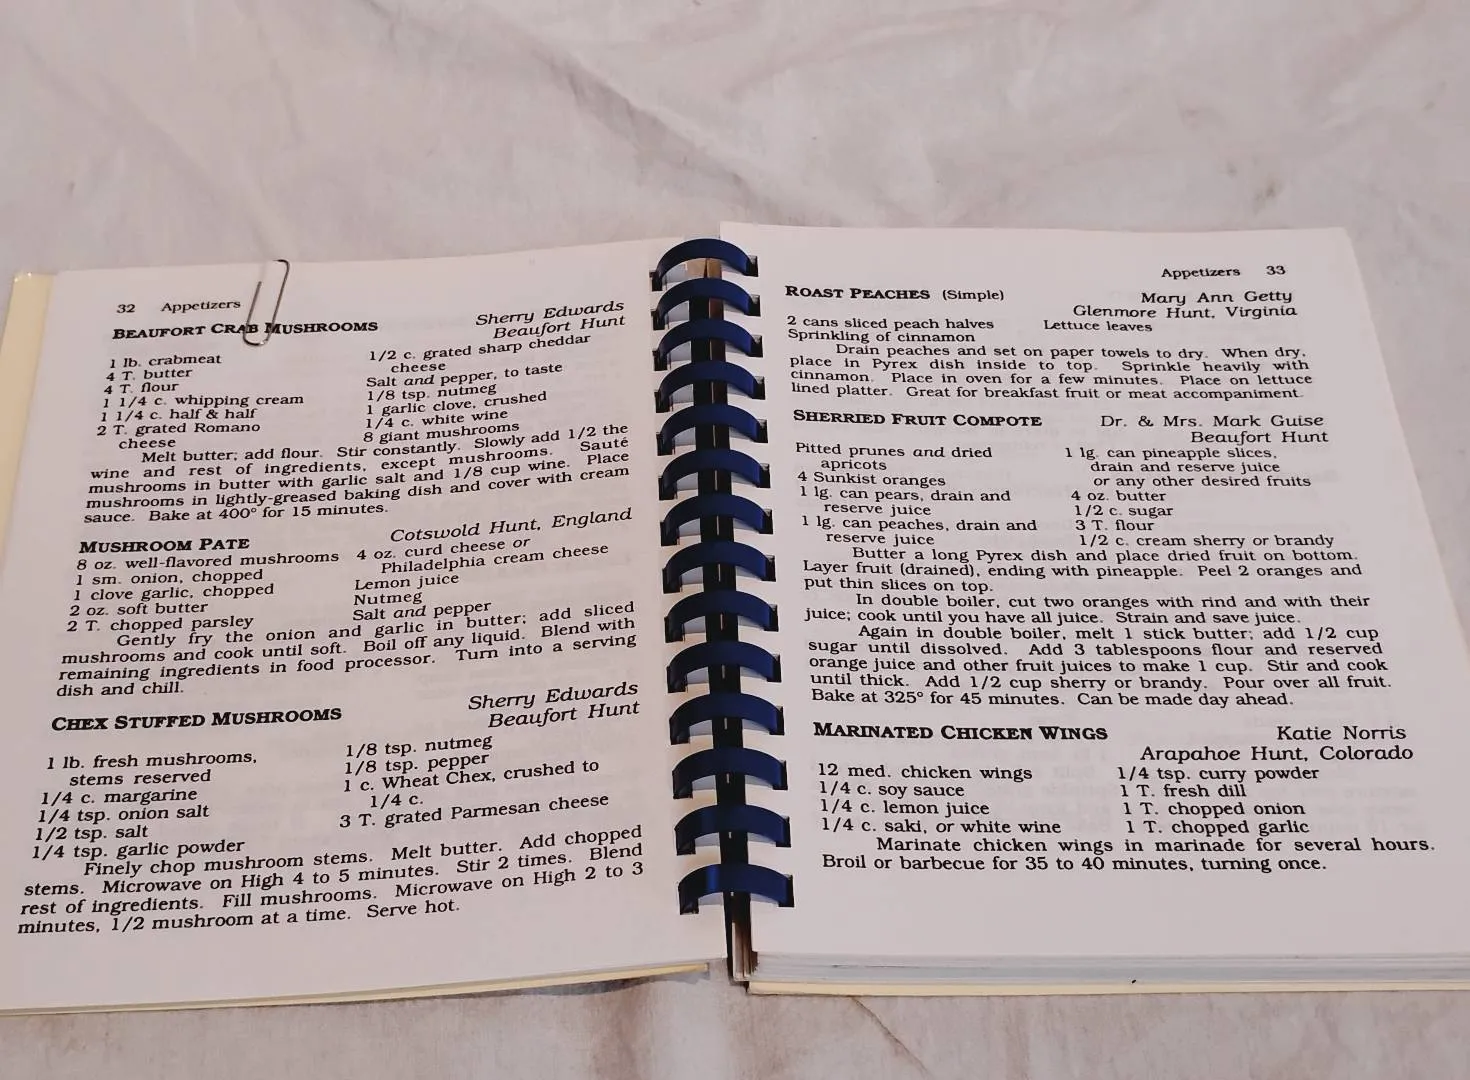 32 Appetizers
BEAUFORT CRAB MUSHROOMS
Sherry Edwards
Beaufort Hunt
1 lb. crabmeat
4 T. butter
4 T. flour
1 1/4 c. whipping cream
1 1/4 c. half & half
2 T. grated Romano
cheese
1/2 c. grated sharp cheddar
cheese
Salt and pepper, to taste
1/8 tsp. nutmeg
1 garlic clove, crushed
1/4 c. white wine
8 giant mushrooms
Melt butter; add flour. Stir constantly. Slowly add 1/2 the
wine and rest of ingredients, except mushrooms. Sauté
mushrooms in butter with garlic salt and 1/8 cup wine. Place
mushrooms in lightly-greased baking dish and cover with cream
sauce. Bake at 400° for 15 minutes.
MUSHROOM PATE
Cotswold Hunt, England
8 oz. well-flavored mushrooms
1 sm. onion, chopped
1 clove garlic, chopped
2 oz. soft butter
2 T. chopped parsley
4 oz. curd cheese or
Philadelphia cream cheese
Lemon juice
Nutmeg
Salt and pepper
Gently fry the onion and garlic in butter; add sliced
mushrooms and cook until soft. Boil off any liquid. Blend with
remaining ingredients in food processor. Turn into a serving
dish and chill.
CHEX STUFFED MUSHROOMS
Sherry Edwards
Beaufort Hunt
1 lb. fresh mushrooms,
stems reserved
1/4 c. margarine
1/4 tsp. onion salt
1/2 tsp. salt
1/4 tsp. garlic powder
1/8 tsp. nutmeg
1/8 tsp. pepper
1 c. Wheat Chex, crushed to
1/4 c.
3 T. grated Parmesan cheese
Finely chop mushroom stems. Melt butter. Add chopped
stems. Microwave on High 4 to 5 minutes. Stir 2 times. Blend
rest of ingredients. Fill mushrooms. Microwave on High 2 to 3
minutes, 1/2 mushroom at a time. Serve hot.
Appetizers 33
ROAST PEACHES (Simple)
Mary Ann Getty
Glenmore Hunt, Virginia
2 cans sliced peach halves
Sprinkling of cinnamon
Lettuce leaves
Drain peaches and set on paper towels to dry. When dry,
place in Pyrex dish inside to top. Sprinkle heavily with
cinnamon. Place in oven for a few minutes. Place on lettuce
lined platter. Great for breakfast fruit or meat accompaniment.
SHERRIED FRUIT COMPOTE
Dr. & Mrs. Mark Guise
Beaufort Hunt
Pitted prunes and dried
apricots
4 Sunkist oranges
1 lg. can pears, drain and
reserve juice
1 lg. can peaches, drain and
reserve juice
1 lg. can pineapple slices,
drain and reserve juice
or any other desired fruits
4 oz. butter
1/2 c. sugar
3 T. flour
1/2 c. cream sherry or brandy
Butter a long Pyrex dish and place dried fruit on bottom.
Layer fruit (drained), ending with pineapple. Peel 2 oranges and
put thin slices on top.
In double boiler, cut two oranges with rind and with their
juice; cook until you have all juice. Strain and save juice.
Again in double boiler, melt 1 stick butter; add 1/2 cup
sugar until dissolved. Add 3 tablespoons flour and reserved
orange juice and other fruit juices to make 1 cup. Stir and cook
until thick. Add 1/2 cup sherry or brandy. Pour over all fruit.
Bake at 325° for 45 minutes. Can be made day ahead.
MARINATED CHICKEN WINGS
Katie Norris
Arapahoe Hunt, Colorado
12 med. chicken wings
1/4 c. soy sauce
1/4 c. lemon juice
1/4 c. saki, or white wine
1/4 tsp. curry powder
1 T. fresh dill
1 T. chopped onion
1 T. chopped garlic
Marinate chicken wings in marinade for several hours.
Broil or barbecue for 35 to 40 minutes, turning once.